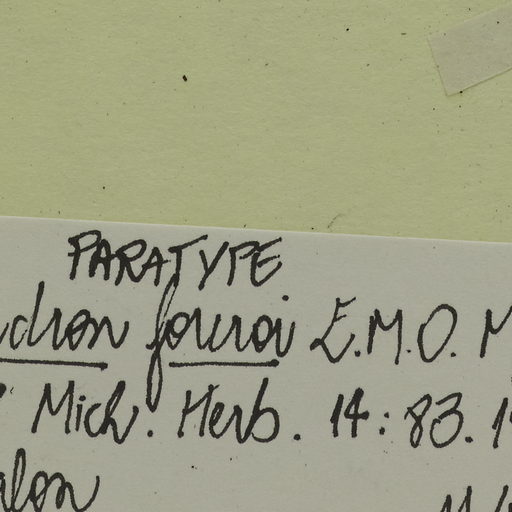 PARATYPE
dron foreroi E.M.O. M
Mich. Herb. 14: 83. 1
alon